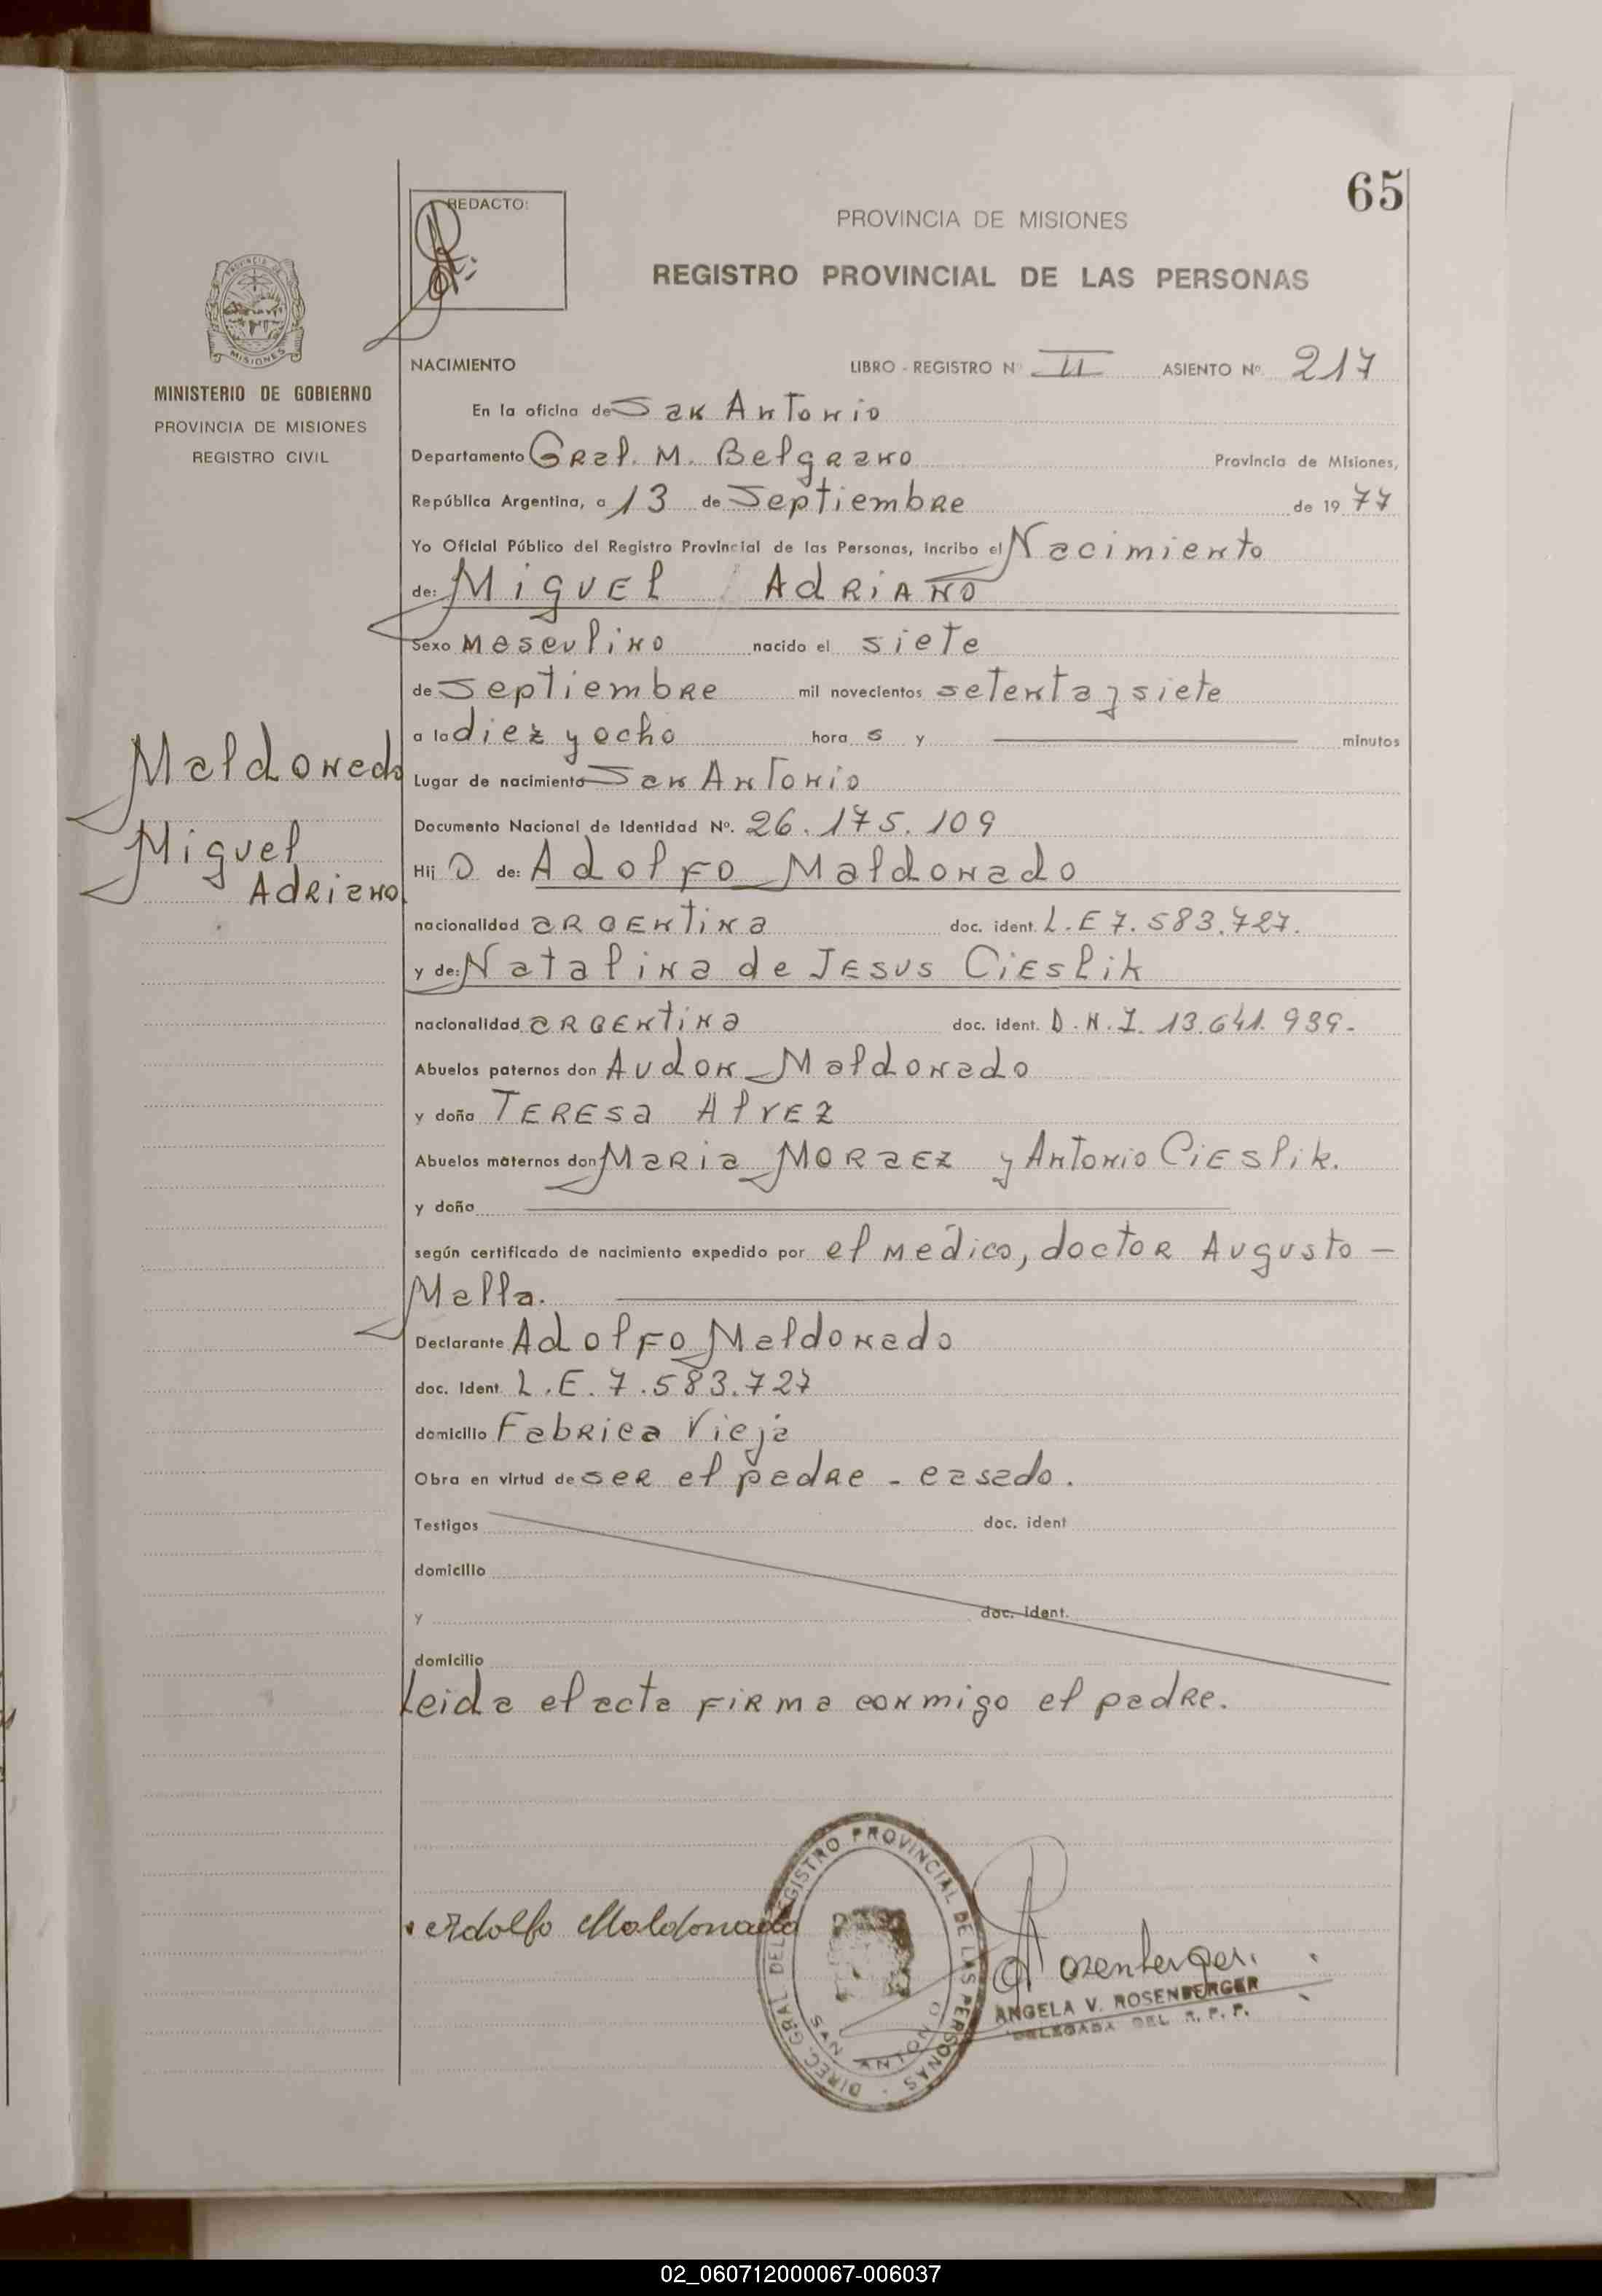 65
REDACTO:
PROVINCIA DE MISIONES
REGISTRO PROVINCIAL DE LAS PERSONAS
PROVINCIA DE
MISIONES
MINISTERIO DE GOBIERNO
PROVINCIA DE MISIONES
REGISTRO CIVIL
NACIMIENTO LIBRO - REGISTRO Nº II ASIENTO Nº 217
En la oficina de San Antonio
Departamento Gral. M. Belgrano Provincia de Misiones,
República Argentina, a 13 de Septiembre de 1977
Yo Oficial Público del Registro Provincial de las Personas, incribo el Nacimiento
de: Miguel Adriano
Sexo Masculino nacido el siete
de Septiembre mil novecientos setenta y siete
a la diez y ocho hora s y minutos
Maldonado
Lugar de nacimiento San Antonio
Documento Nacional de Identidad Nº. 26.175.109
Miguel
Adriano
Hij o de: Adolfo Maldonado
nacionalidad argentina doc. ident. L.E 7.583.727.
y de: Natalina de Jesus Cieslik
nacionalidad argentina doc. ident. D.N.I. 13.641.939.
Abuelos paternos don Audon Maldonado
y doña Teresa Alvez
Abuelos maternos don Maria Moraez y Antonio Cieslik.
y doña
según certificado de nacimiento expedido por el médico, doctor Augusto -
Malla.
Declarante Adolfo Maldonado
doc. Ident. L.E. 7.583.727
domicilio Fabrica Vieja
Obra en virtud de ser el padre - casado.
Testigos doc. ident
domicilio
y doc. ident.
domicilio
Leida el acta firma conmigo el padre.
Adolfo Maldonado
DIREC. GRAL DEL REGISTRO PROVINCIAL DE LAS PERSONAS
SAN ANTONIO
Rosenberger
ANGELA V. ROSENBERGER
DELEGADA DEL R. P. P.
02_060712000067-006037